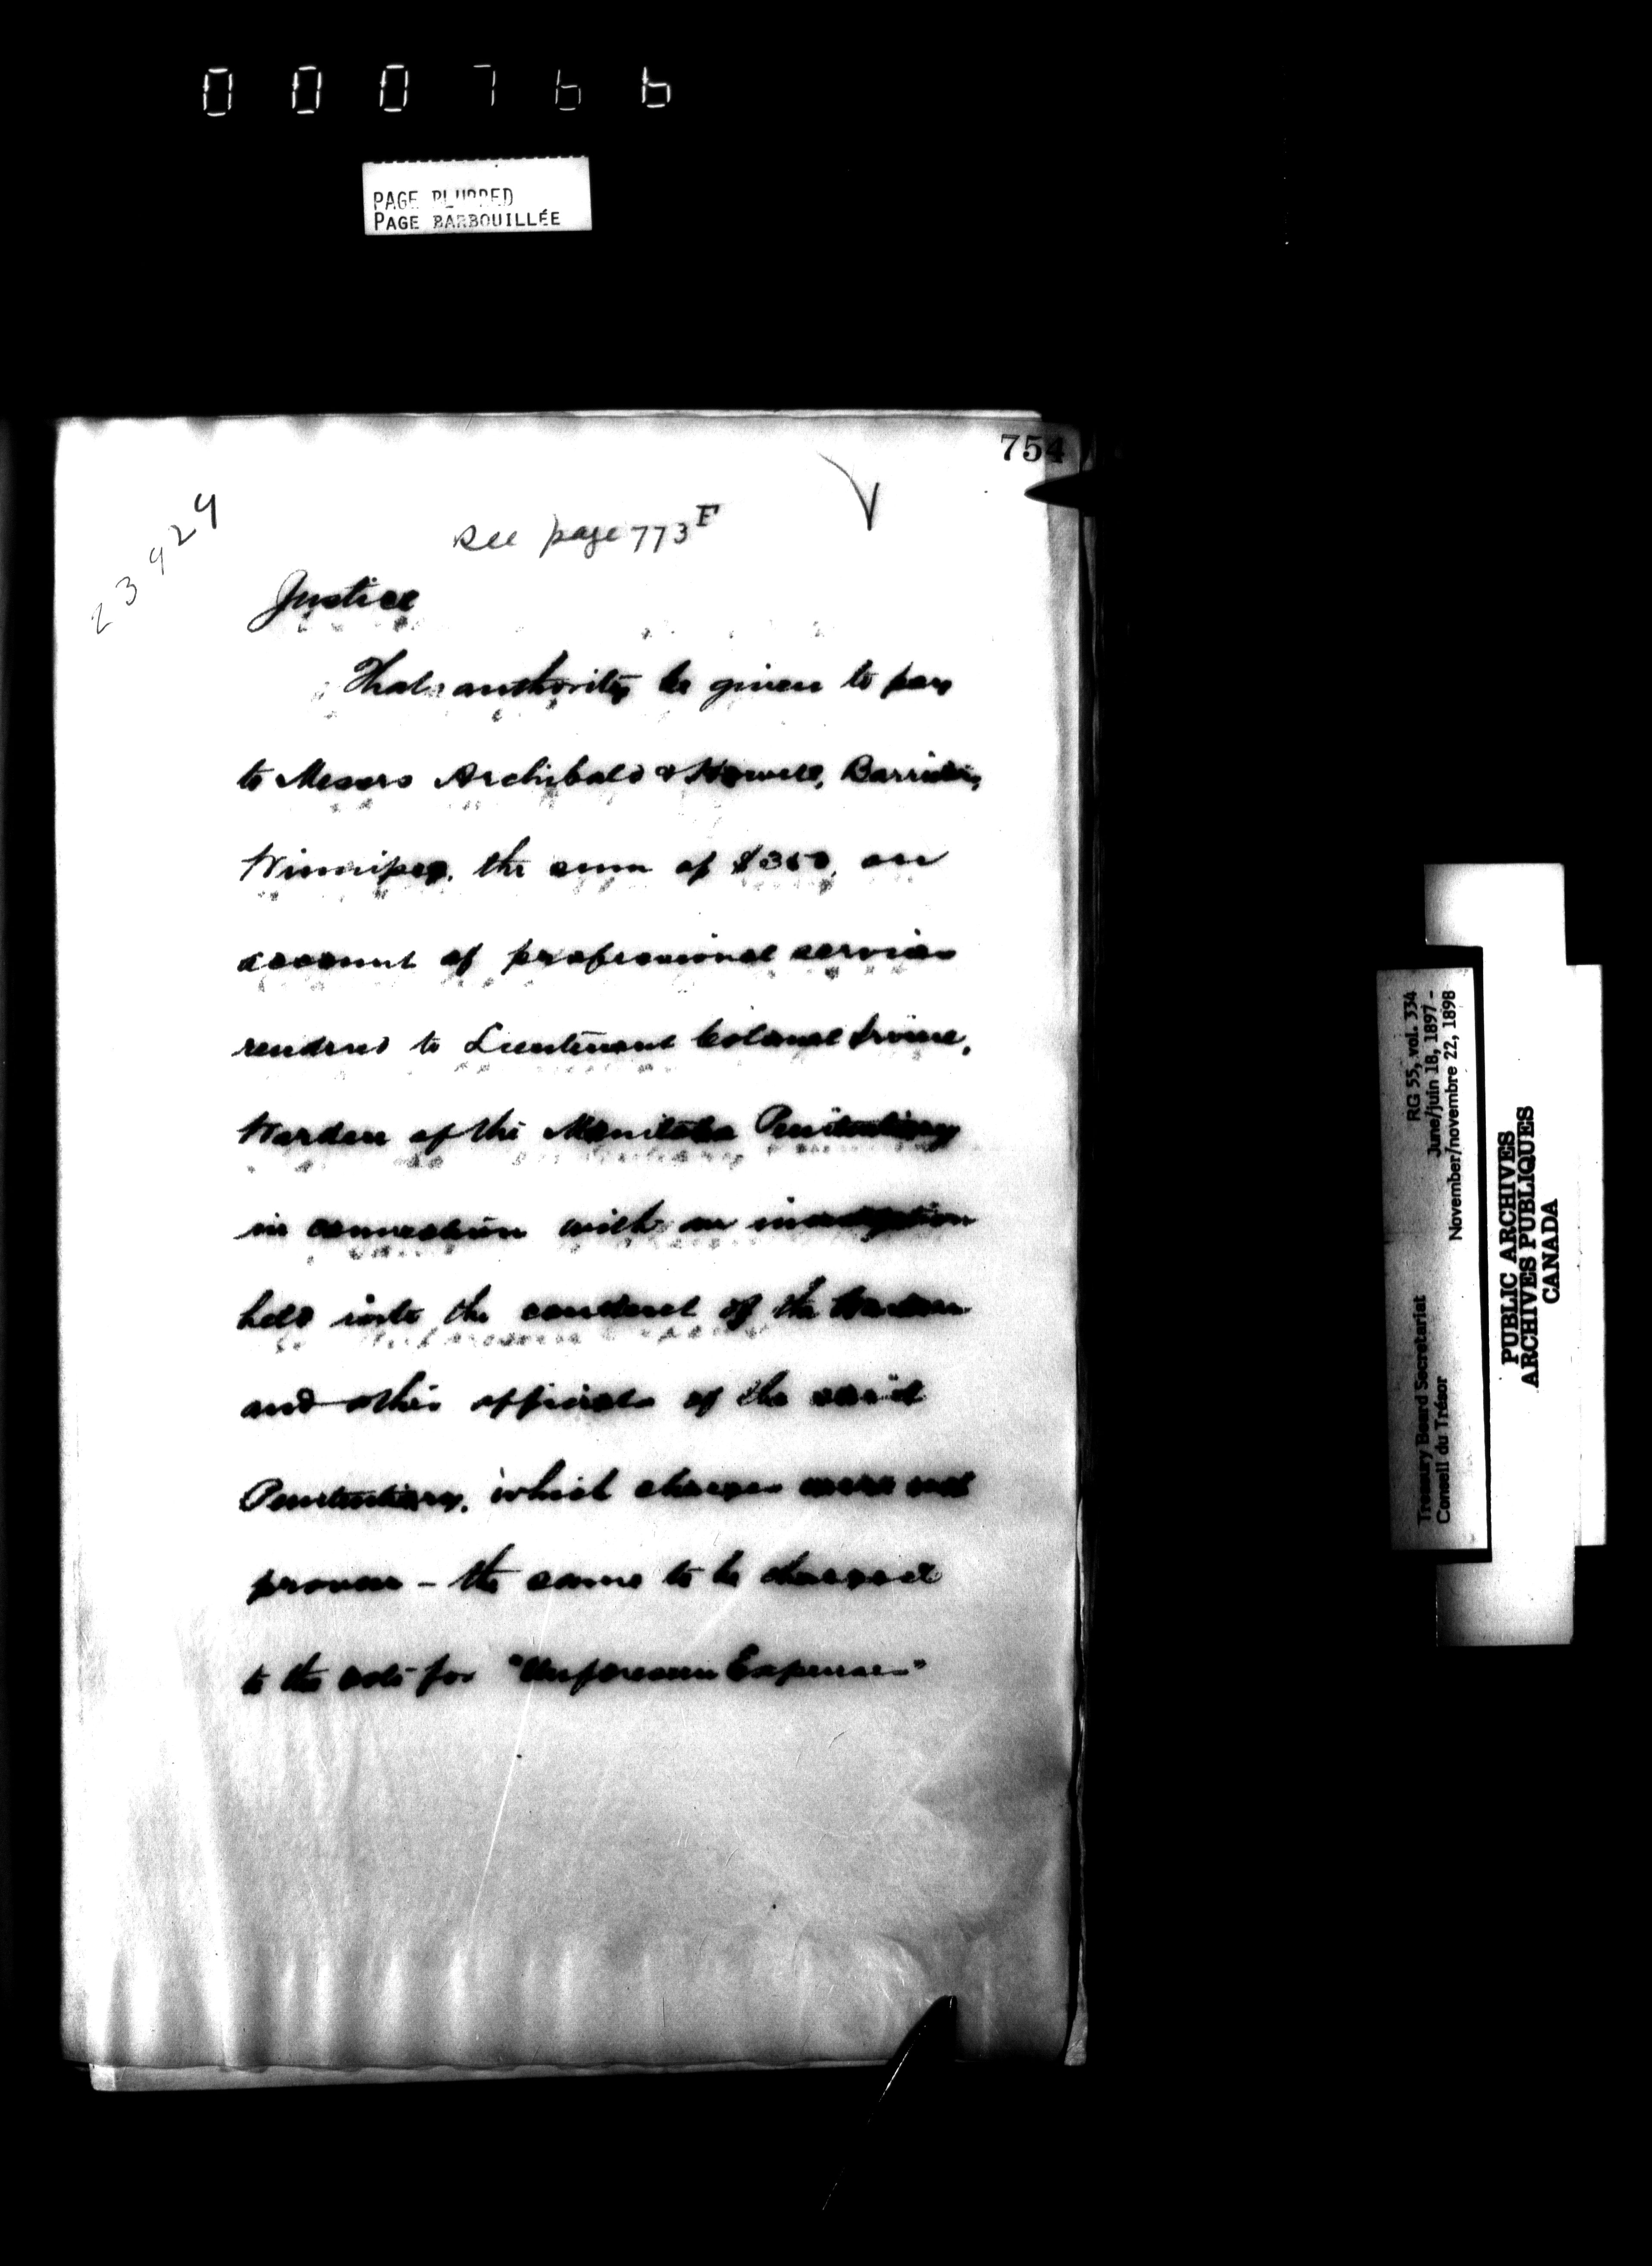 000766
PAGE BLURRED
PAGE BARBOUILLÉE
754
23929
see page 773 F
Justice
That authority be given to pay
to Messrs Archibald & Howell, Barristers,
Winnipeg, the sum of $350, on
account of professional services
rendered to Lieutenant Colonel Irvine,
Warden of the Manitoba Penitentiary
in connection with an investigation
held into the conduct of the Warden
and other officials of the said
Penitentiary, which charges were not
proven - the same to be charged
to the vote for "Unforeseen Expenses"
RG 55, vol. 334
June/juin 18, 1897 -
November/novembre 22, 1898
Treasury Board Secretariat
Conseil du Trésor
PUBLIC ARCHIVES
ARCHIVES PUBLIQUES
CANADA